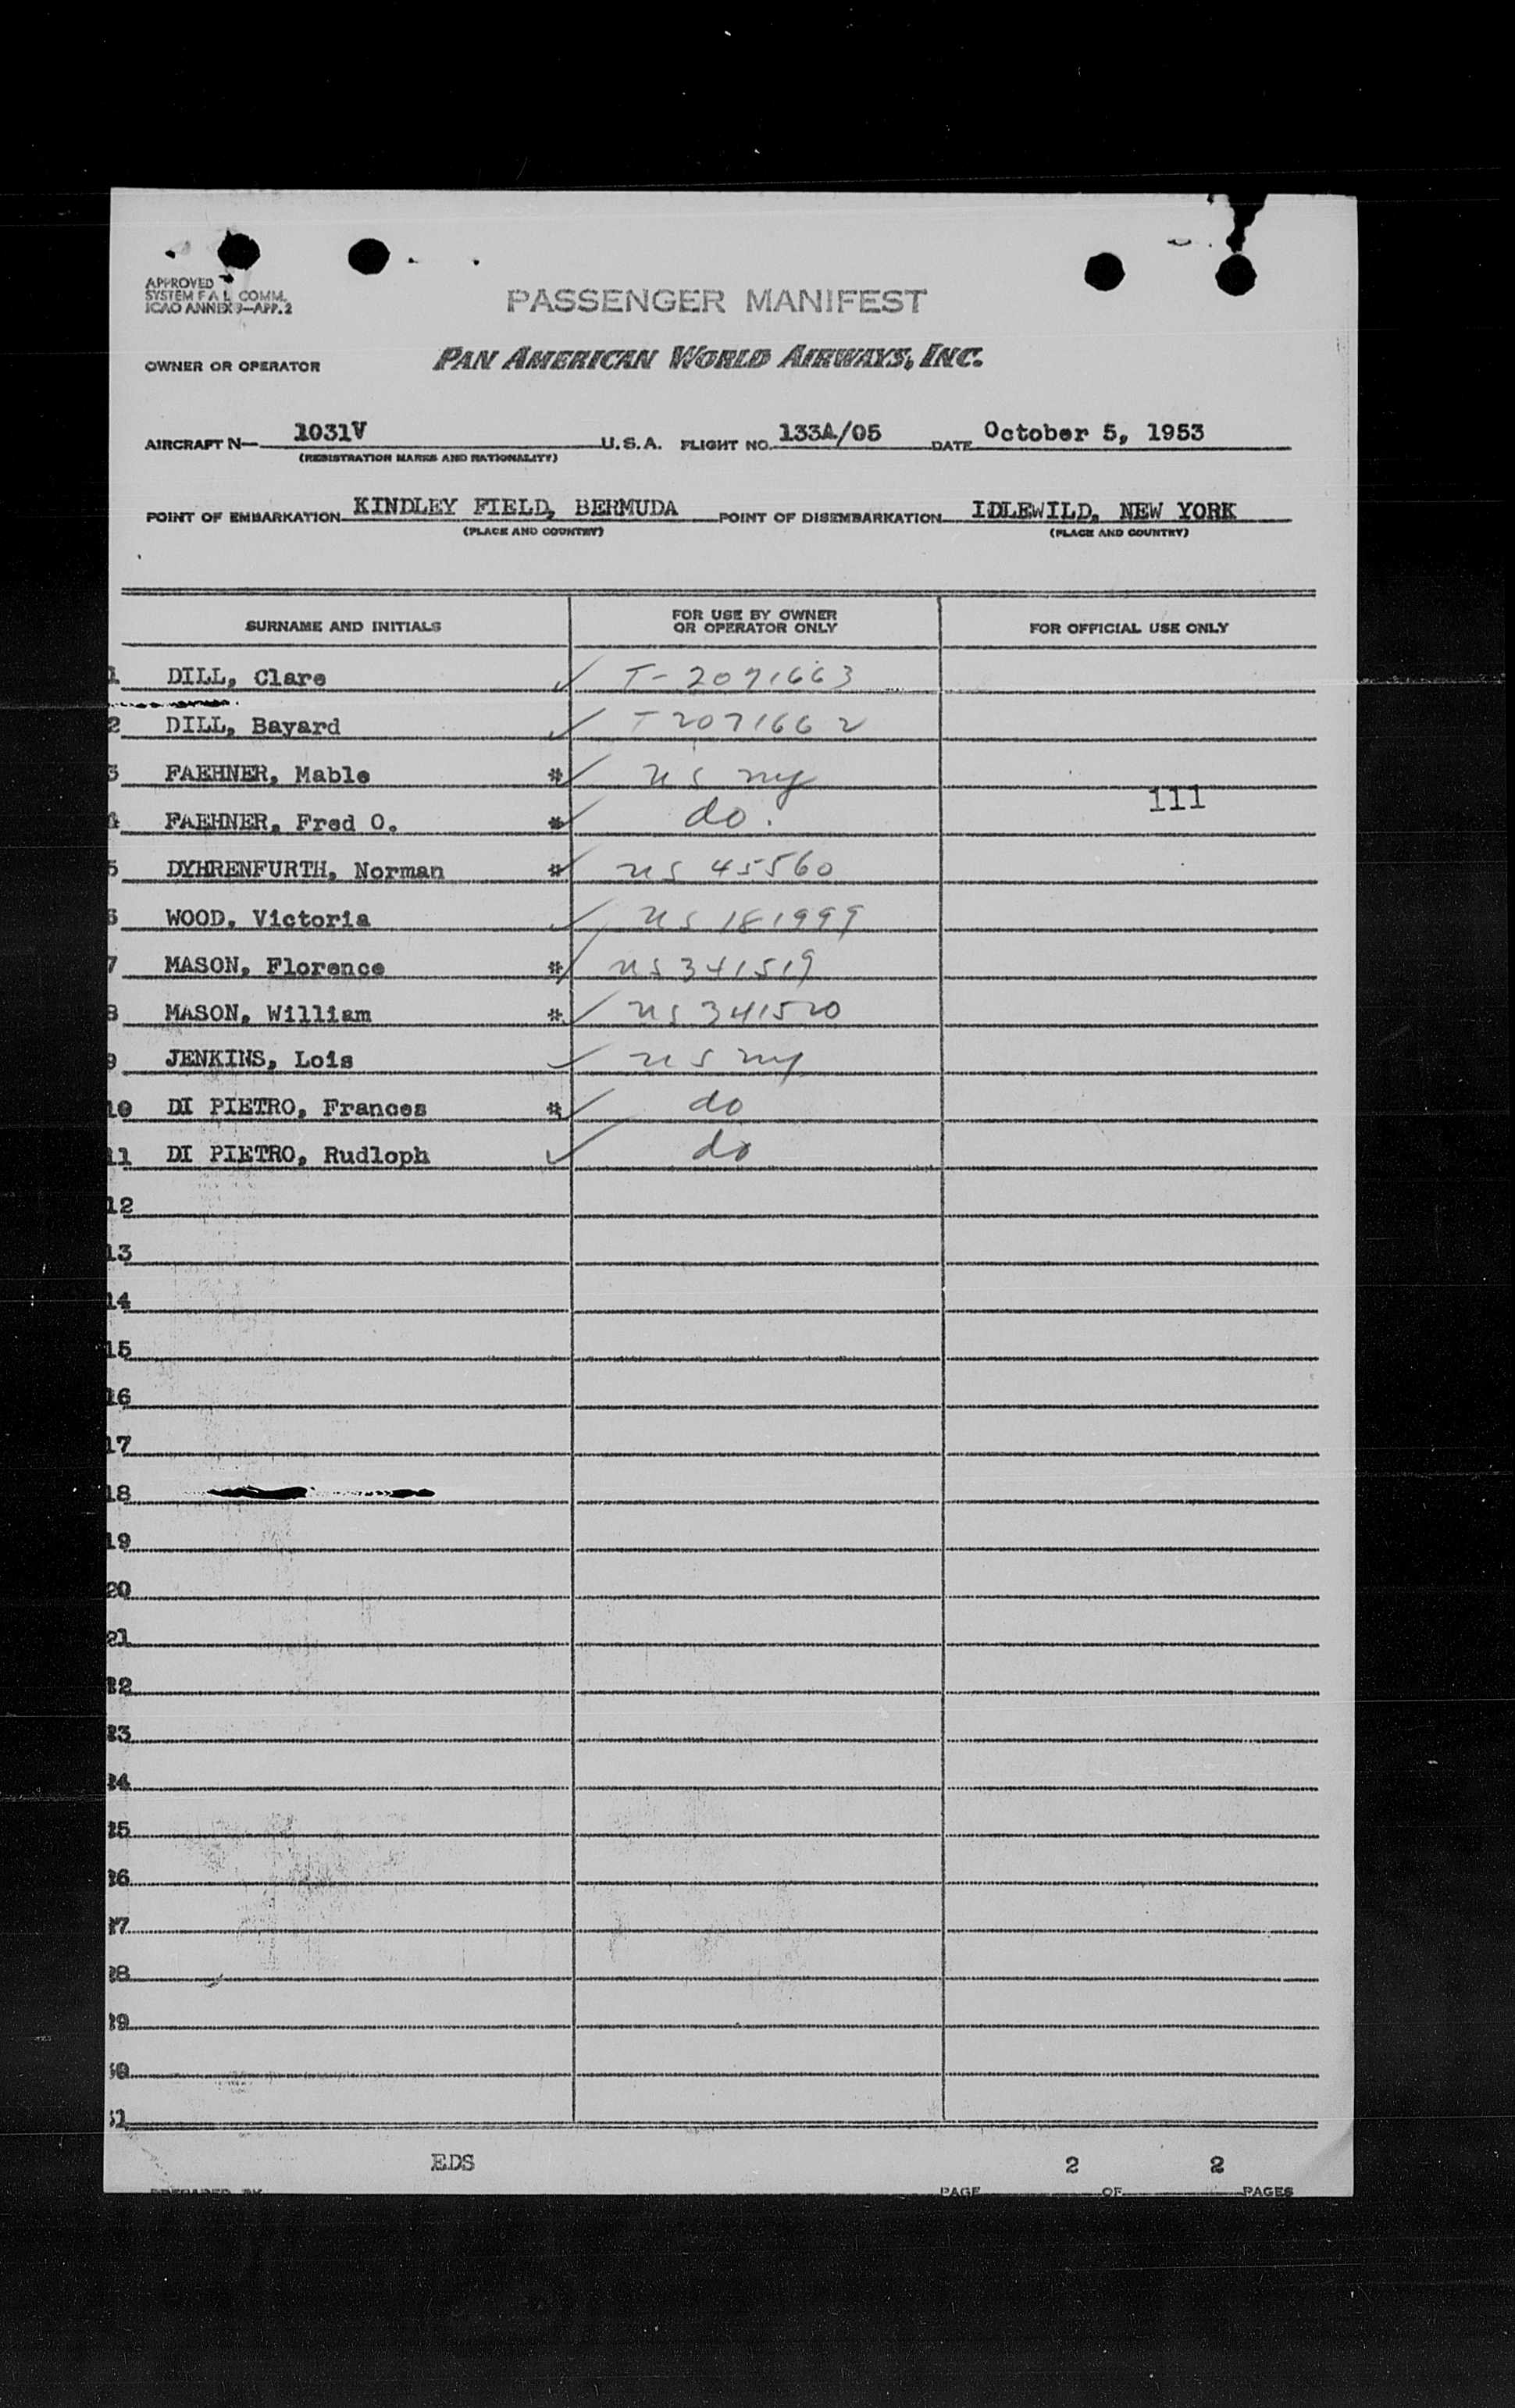 APPROVED
SYSTEM F A L COMM.
ICAO ANNEX 9—APP. 2
PASSENGER MANIFEST
OWNER OR OPERATOR PAN AMERICAN WORLD AIRWAYS, INC.
AIRCRAFT N— 1031V U.S.A. FLIGHT NO. 133A/05 DATE October 5, 1953
(REGISTRATION MARKS AND NATIONALITY)
POINT OF EMBARKATION KINDLEY FIELD, BERMUDA POINT OF DISEMBARKATION IDLEWILD, NEW YORK
(PLACE AND COUNTRY) (PLACE AND COUNTRY)
SURNAME AND INITIALS FOR USE BY OWNER OR OPERATOR ONLY FOR OFFICIAL USE ONLY
1 DILL, Clare ✓ T-2071663
2 DILL, Bayard ✓ T2071662
3 FAEHNER, Mable *✓ US NY
111
4 FAEHNER, Fred O. *✓ do.
5 DYHRENFURTH, Norman *✓ US 45560
6 WOOD, Victoria ✓ US 181999
7 MASON, Florence *✓ US 341519
8 MASON, William *✓ US 341520
9 JENKINS, Lois ✓ US NY
10 DI PIETRO, Frances *✓ do
11 DI PIETRO, Rudloph ✓ do
12
13
14
15
16
17
18
19
20
21
22
23
24
25
26
27
28
29
30
31
EDS 2 2
PREPARED BY PAGE OF PAGES